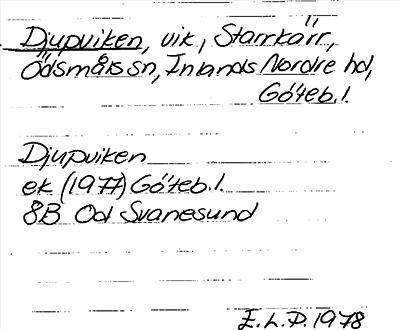 Djupviken, vik, Starrkärr,
Ödsmåls sn, Inlands Nordre hd,
Göteb. l.
Djupviken
ek (1977) Göteb. l.
8B Od Svanesund
E. L. P. 1978